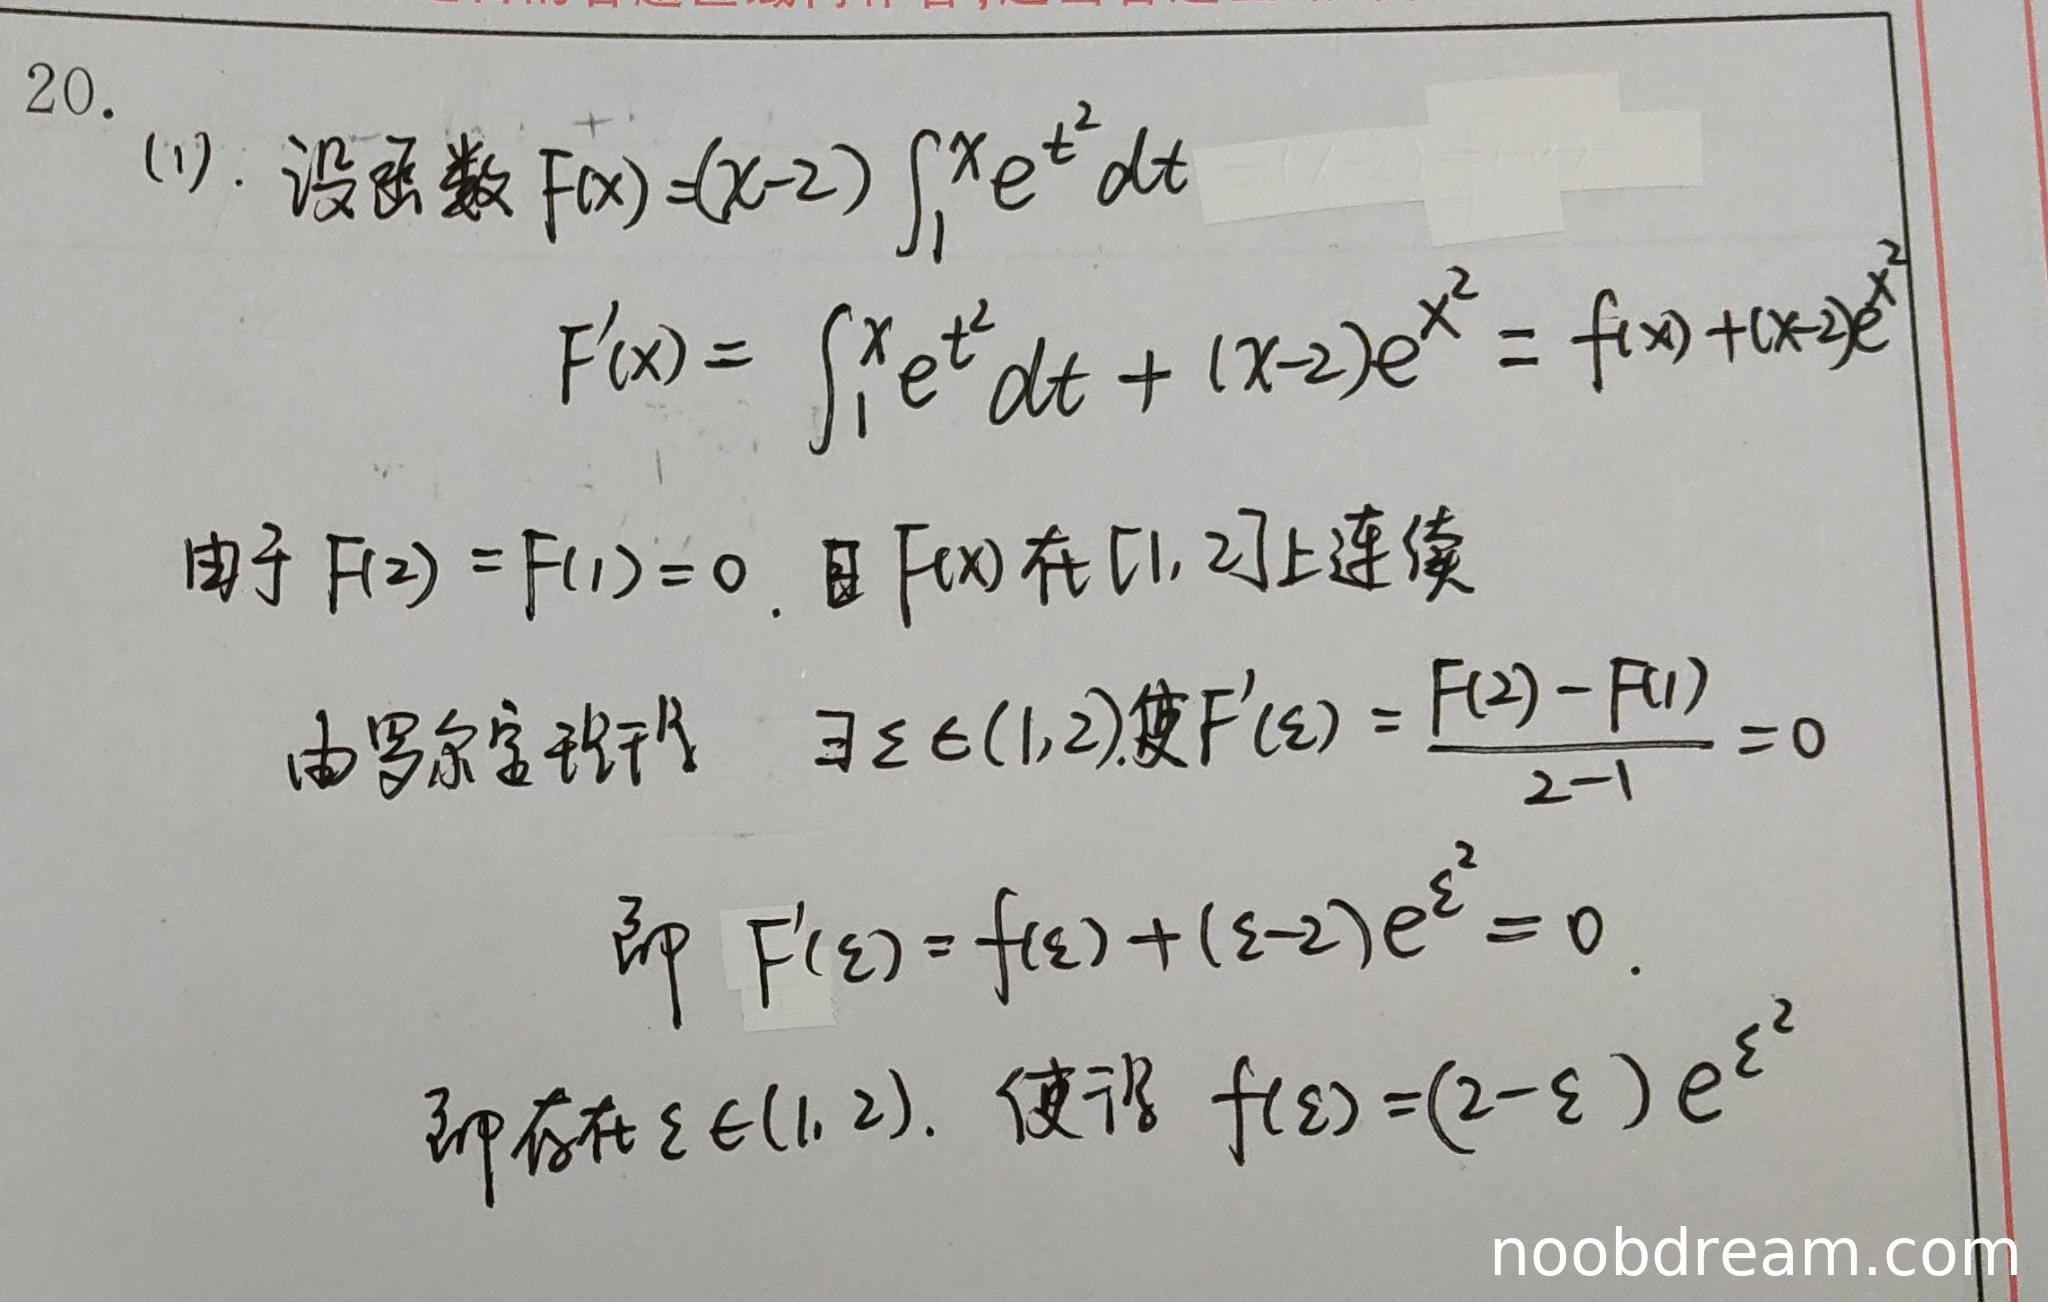 20.
(1). 设函数 F(x)=(x-2)∫₁ˣ e^{t²} dt
F'(x) = ∫₁ˣ e^{t²} dt + (x-2)e^{x²} = f(x) + (x-2)e^{x²}
由于 F(2) = F(1) = 0 . 且 F(x) 在 [1, 2] 上连续
由罗尔定理得 ∃ε∈(1,2).使F'(ε) = \frac{F(2) - F(1)}{2-1} = 0
即 F'(ε) = f(ε) + (ε-2)e^{ε²} = 0 .
即存在ε∈(1, 2). 使得 f(ε) = (2-ε) e^{ε²}
noobdream.com